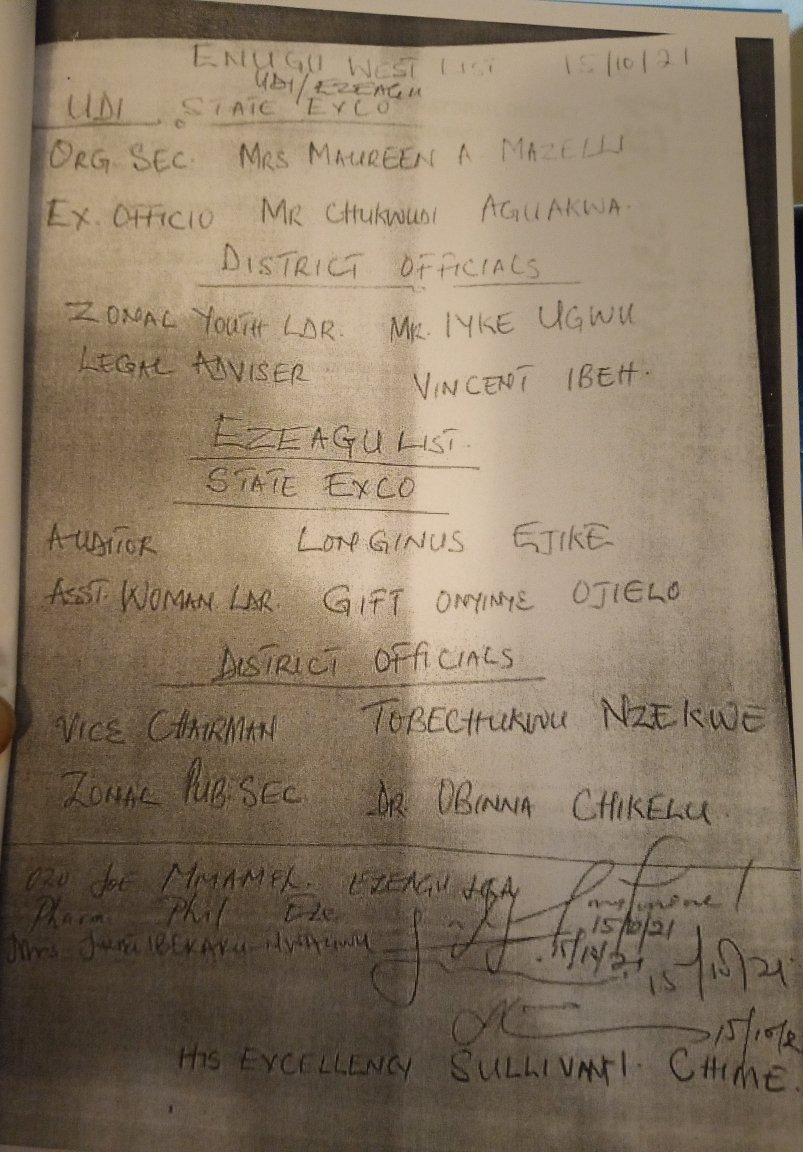 ENUGU WEST LIST 15/10/21
UDI/EZEAGU
UDI. STATE EXCO
ORG. SEC. MRS MAUREEN A MAZELLI
EX. OFFICIO MR CHUKWUDI AGUAKWA.
DISTRICT OFFICIALS
ZONAL YOUTH LDR. MR. IYKE UGWU
LEGAL ADVISER VINCENT IBEH.
EZEAGU LIST.
STATE EXCO
AUDITOR LONGINUS EJIKE
ASST. WOMAN LDR. GIFT ONYINYE OJIELO
DISTRICT OFFICIALS
VICE CHAIRMAN TOBECHUKWU NZEKWE
ZONAL PUB. SEC DR OBINNA CHIKELU.
OZO JOE MMAMEL. EZEAGU LGA
Pharm. Phil Eze 15/10/21
Mrs 15/10/21
15/10/21
15/10/2
HIS EXCELLENCY SULLIVAN I. CHIME.